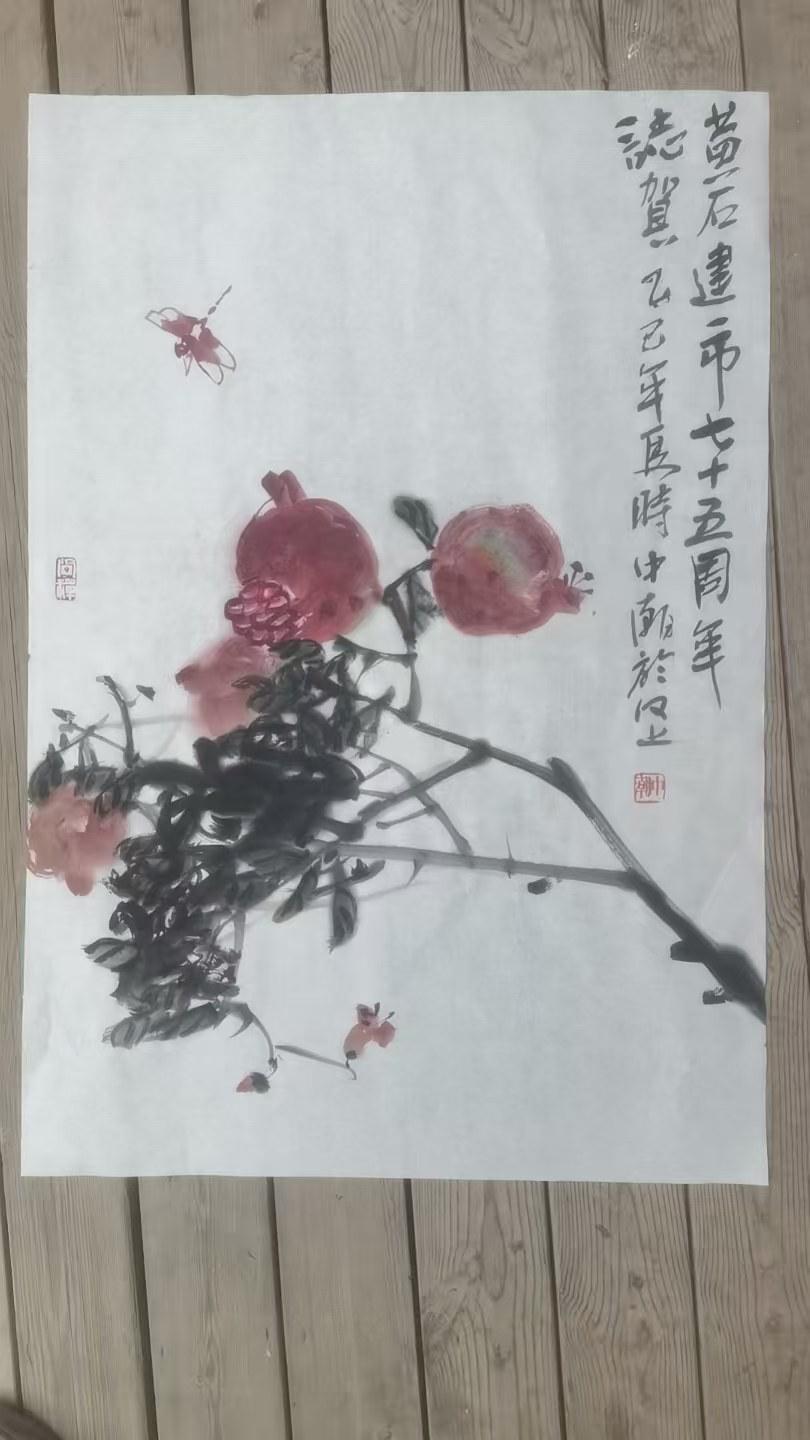 黄石建市七十五周年
誌賀 乙巳年夏時中潮於汉上